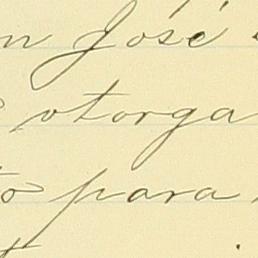 n José
otorga
to para